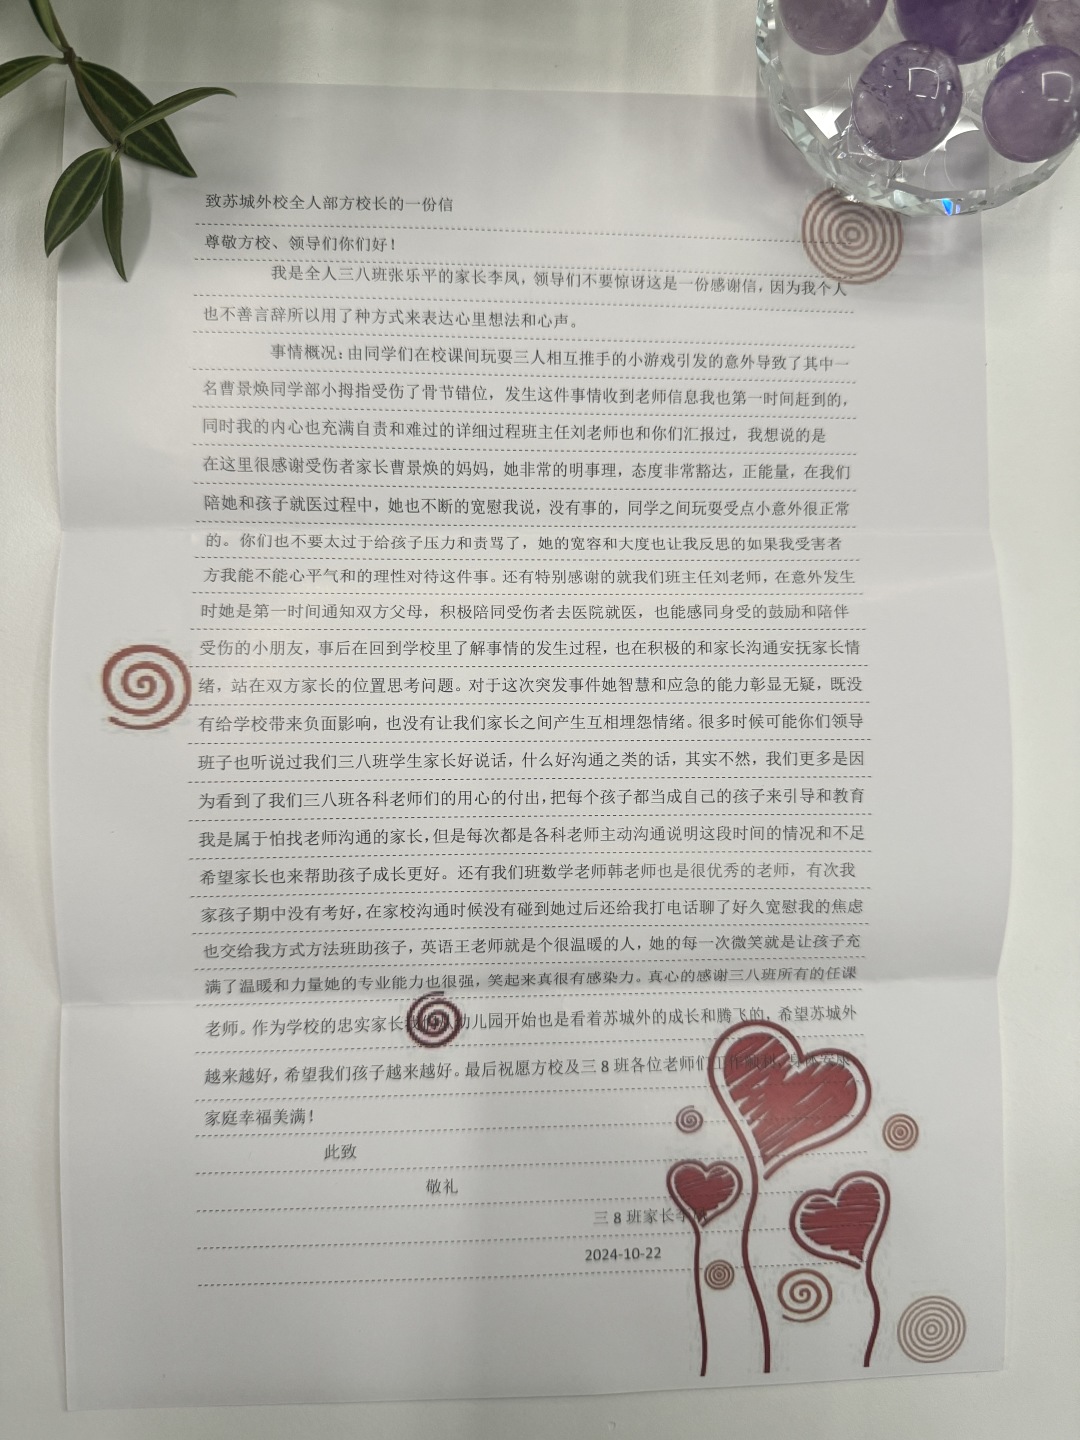 致苏城外校全人部方校长的一份信
尊敬方校、领导们你们好！
我是全人三八班张乐平的家长李凤，领导们不要惊讶这是一份感谢信，因为我个人
也不善言辞所以用了种方式来表达心里想法和心声。
事情概况：由同学们在校课间玩耍三人相互推手的小游戏引发的意外导致了其中一
名曹景焕同学部小拇指受伤了骨节错位，发生这件事情收到老师信息我也第一时间赶到的，
同时我的内心也充满自责和难过的详细过程班主任刘老师也和你们汇报过，我想说的是
在这里很感谢受伤者家长曹景焕的妈妈，她非常的明事理，态度非常豁达，正能量，在我们
陪她和孩子就医过程中，她也不断的宽慰我说，没有事的，同学之间玩耍受点小意外很正常
的。你们也不要太过于给孩子压力和责骂了，她的宽容和大度也让我反思的如果我受害者
方我能不能心平气和的理性对待这件事。还有特别感谢的就我们班主任刘老师，在意外发生
时她是第一时间通知双方父母，积极陪同受伤者去医院就医，也能感同身受的鼓励和陪伴
受伤的小朋友，事后在回到学校里了解事情的发生过程，也在积极的和家长沟通安抚家长情
绪，站在双方家长的位置思考问题。对于这次突发事件她智慧和应急的能力彰显无疑，既没
有给学校带来负面影响，也没有让我们家长之间产生互相埋怨情绪。很多时候可能你们领导
班子也听说过我们三八班学生家长好说话，什么好沟通之类的话，其实不然，我们更多是因
为看到了我们三八班各科老师们的用心的付出，把每个孩子都当成自己的孩子来引导和教育
我是属于怕找老师沟通的家长，但是每次都是各科老师主动沟通说明这段时间的情况和不足
希望家长也来帮助孩子成长更好。还有我们班数学老师韩老师也是很优秀的老师，有次我
家孩子期中没有考好，在家校沟通时候没有碰到她过后还给我打电话聊了好久宽慰我的焦虑
也交给我方式方法班助孩子，英语王老师就是个很温暖的人，她的每一次微笑就是让孩子充
满了温暖和力量她的专业能力也很强，笑起来真很有感染力。真心的感谢三八班所有的任课
老师。作为学校的忠实家长我们从幼儿园开始也是看着苏城外的成长和腾飞的，希望苏城外
越来越好，希望我们孩子越来越好。最后祝愿方校及三 8 班各位老师们工作顺利，身体安康
家庭幸福美满！
此致
敬礼
三 8 班家长李凤
2024-10-22